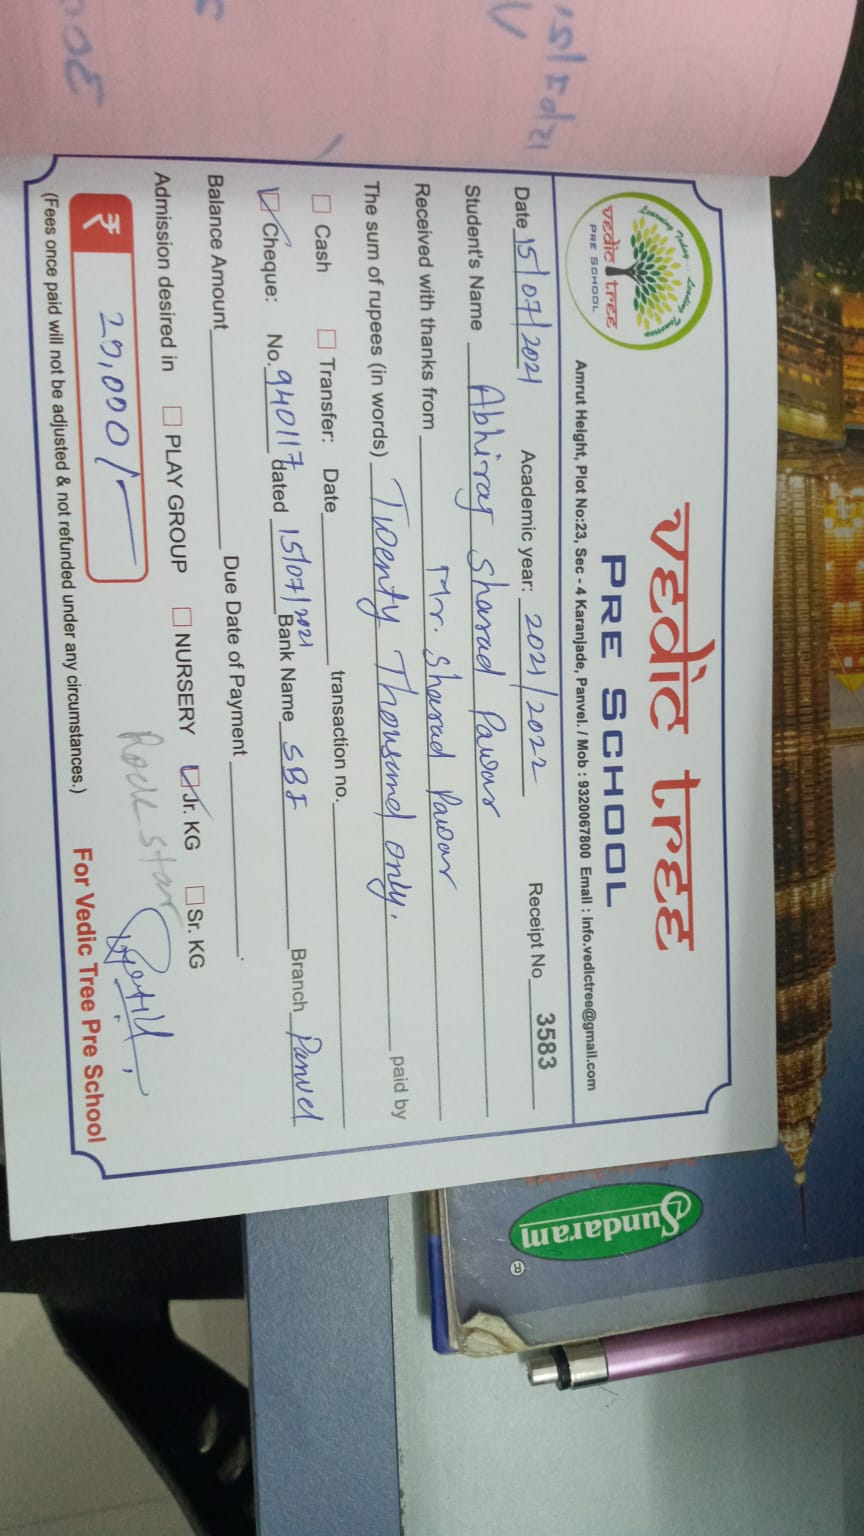 vedic tree
PRE SCHOOL
Learning Today... Leading Tomorrow
vedic tree
PRE SCHOOL
Amrut Height, Plot No:23, Sec - 4 Karanjade, Panvel. / Mob : 9320067800 Email : Info.vedictree@gmail.com
Date 15/07/2021 Academic year: 2021/2022 Receipt No 3583
Student's Name Abhiraj Sharad Pawar
Received with thanks from Mr. Sharad Pawar
The sum of rupees (in words) Twenty Thousand only. paid by
Cash Transfer: Date transaction no.
Cheque: No. 940117 dated 15/07/2021 Bank Name SBI Branch Panvel
Balance Amount Due Date of Payment
Admission desired in PLAY GROUP NURSERY Jr. KG Sr. KG
Rock star
₹ 20,000/-
(Fees once paid will not be adjusted & not refunded under any circumstances.) For Vedic Tree Pre School
Sundaram